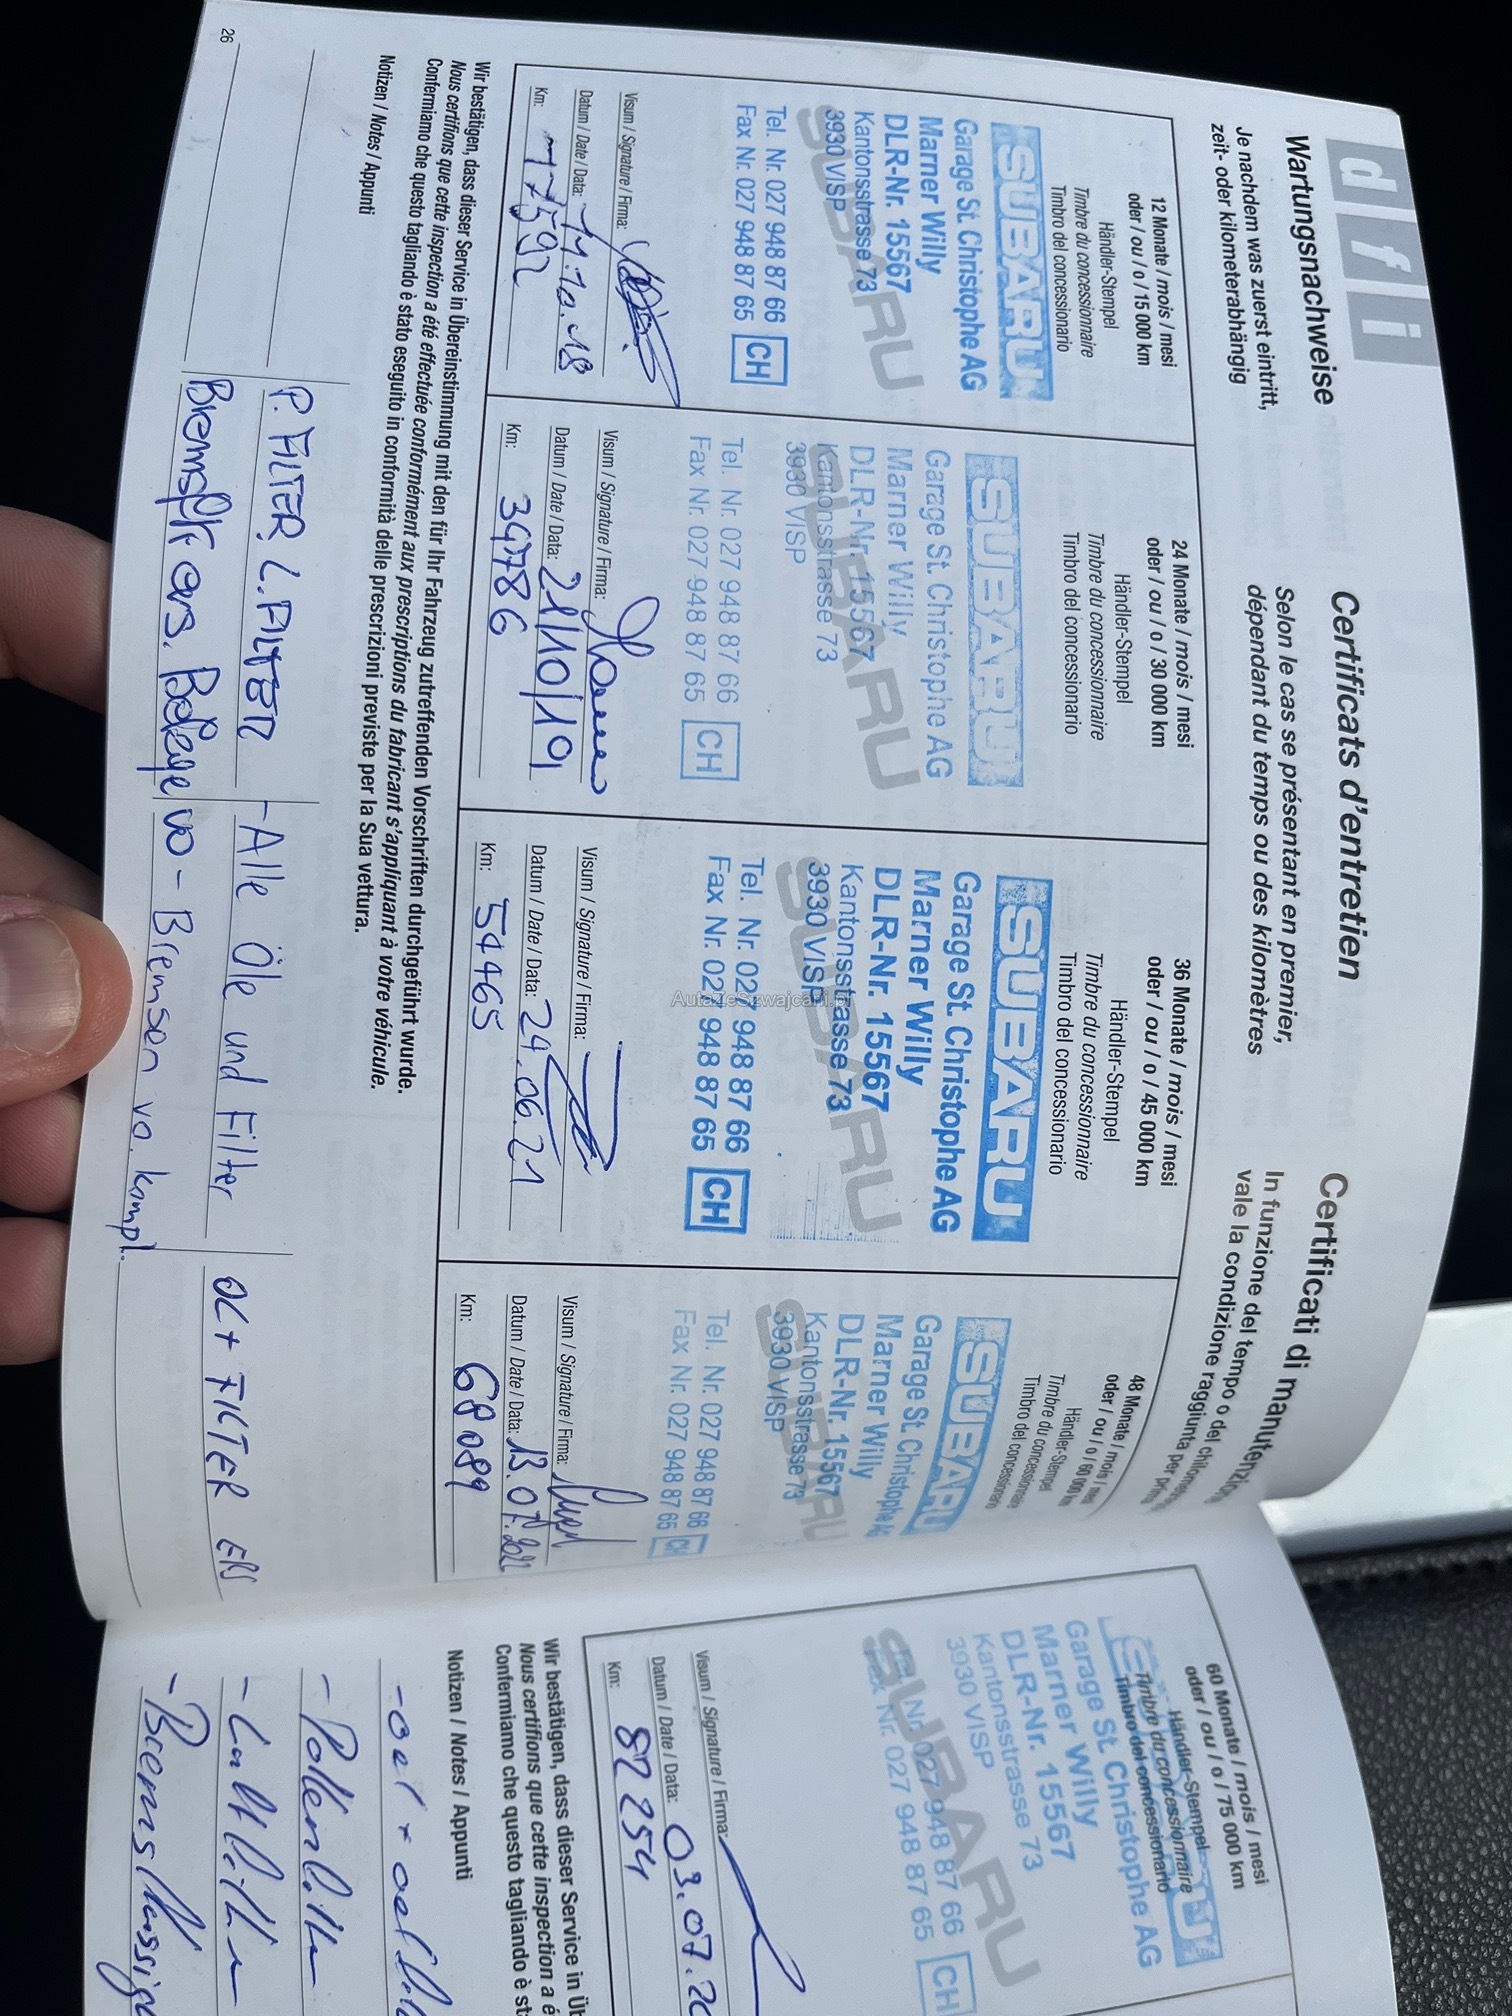 d f i
Wartungsnachweise
Je nachdem was zuerst eintritt,
zeit- oder kilometerabhängig
Certificats d'entretien
Selon le cas se présentant en premier,
dépendant du temps ou des kilomètres
Certificati di manutenzione
In funzione del tempo o dei
vale la condizione raggiunta per
12 Monate / mois / mesi
oder / ou / o / 15 000 km
Händler-Stempel
Timbre du concessionnaire
Timbro del concessionario
SUBARU
Garage St. Christophe AG
Marner Willy
DLR-Nr. 15567
Kantonsstrasse 73
3930 VISP
SUBARU
Tel. Nr. 027 948 87 66
Fax Nr. 027 948 87 65
CH
Visum / Signature / Firma:
Datum / Date / Data: 11.10.18
Km: 17592
24 Monate / mois / mesi
oder / ou / o / 30 000 km
Händler-Stempel
Timbre du concessionnaire
Timbro del concessionario
SUBARU
Garage St. Christophe AG
Marner Willy
DLR-Nr. 15567
Kantonsstrasse 73
3930 VISP
SUBARU
Tel. Nr. 027 948 87 66
Fax Nr. 027 948 87 65
CH
Visum / Signature / Firma:
Datum / Date / Data: 21/10/19
Km: 34786
36 Monate / mois / mesi
oder / ou / o / 45 000 km
Händler-Stempel
Timbre du concessionnaire
Timbro del concessionario
SUBARU
Garage St. Christophe AG
Marner Willy
DLR-Nr. 15567
Kantonsstrasse 73
3930 VISP
SUBARU
Tel. Nr. 027 948 87 66
Fax Nr. 027 948 87 65
CH
Visum / Signature / Firma:
Datum / Date / Data: 24.06.21
Km: 54465
48 Monate / mois / mesi
oder / ou / o / 60 000 km
Händler-Stempel
Timbre du concessionnaire
Timbro del concessionario
SUBARU
Garage St. Christophe AG
Marner Willy
DLR-Nr. 15567
Kantonsstrasse 73
3930 VISP
SUBARU
Tel. Nr. 027 948 87 66
Fax Nr. 027 948 87 65
CH
Visum / Signature / Firma:
Datum / Date / Data: 13.07.2022
Km: 68089
Wir bestätigen, dass dieser Service in Übereinstimmung mit den für Ihr Fahrzeug zutreffenden Vorschriften durchgeführt wurde.
Nous certifions que cette inspection a été effectuée conformément aux prescriptions du fabricant s'appliquant à votre véhicule.
Confermiamo che questo tagliando è stato eseguito in conformità delle prescrizioni previste per la Sua vettura.
Notizen / Notes / Appunti
P. FILTER, L. FILTER
Bremsfl. ers. Beläge vo
- Alle Öle und Filter
- Bremsen vo. kompl.
OL + FILTER ERS
26
60 Monate / mois / mesi
oder / ou / o / 75 000 km
Händler-Stempel
Timbre du concessionnaire
Timbro del concessionario
Garage St. Christophe AG
Marner Willy
DLR-Nr. 15567
Kantonsstrasse 73
3930 VISP
SUBARU
Nr. 027 948 87 66
Nr. 027 948 87 65
CH
Visum / Signature / Firma:
Datum / Date / Data: 03.07.20
Km: 82254
Wir bestätigen, dass dieser Service in
Nous certifions que cette inspection a
Confermiamo che questo tagliando è
Notizen / Notes / Appunti
- Pollenfilter
- Luftfilter
AutaZeSzwajcarii.pl